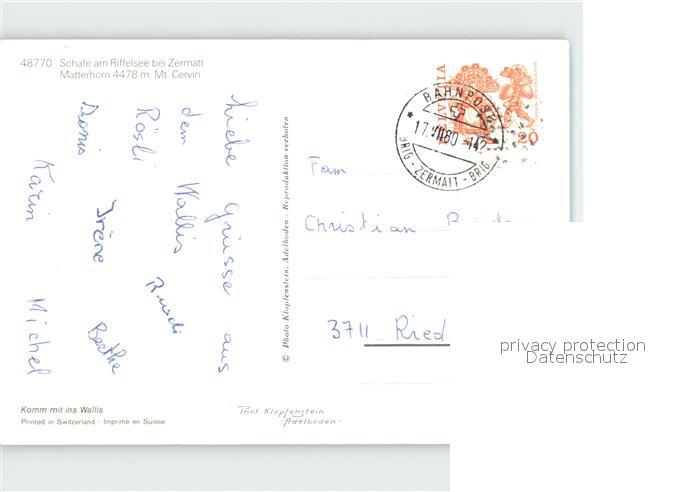 48770 Schafe am Riffelsee bei Zermatt
Matterhorn 4478 m. Mt. Cervin
Liebe Grüsse aus
dem Wallis
Rösli Ruedi
Doris Irène Berthe
Karin Michel
© Photo Klopfenstein, Adelboden - Reproduktion verboten
HELVETIA
20
BAHNPOST
17.VII.80 -142
BRIG - ZERMATT - BRIG
Fam
Christian
3711 Ried
privacy protection
Datenschutz
Komm mit ins Wallis
Printed in Switzerland - Imprimé en Suisse
Phot. Klopfenstein
-Adelboden-